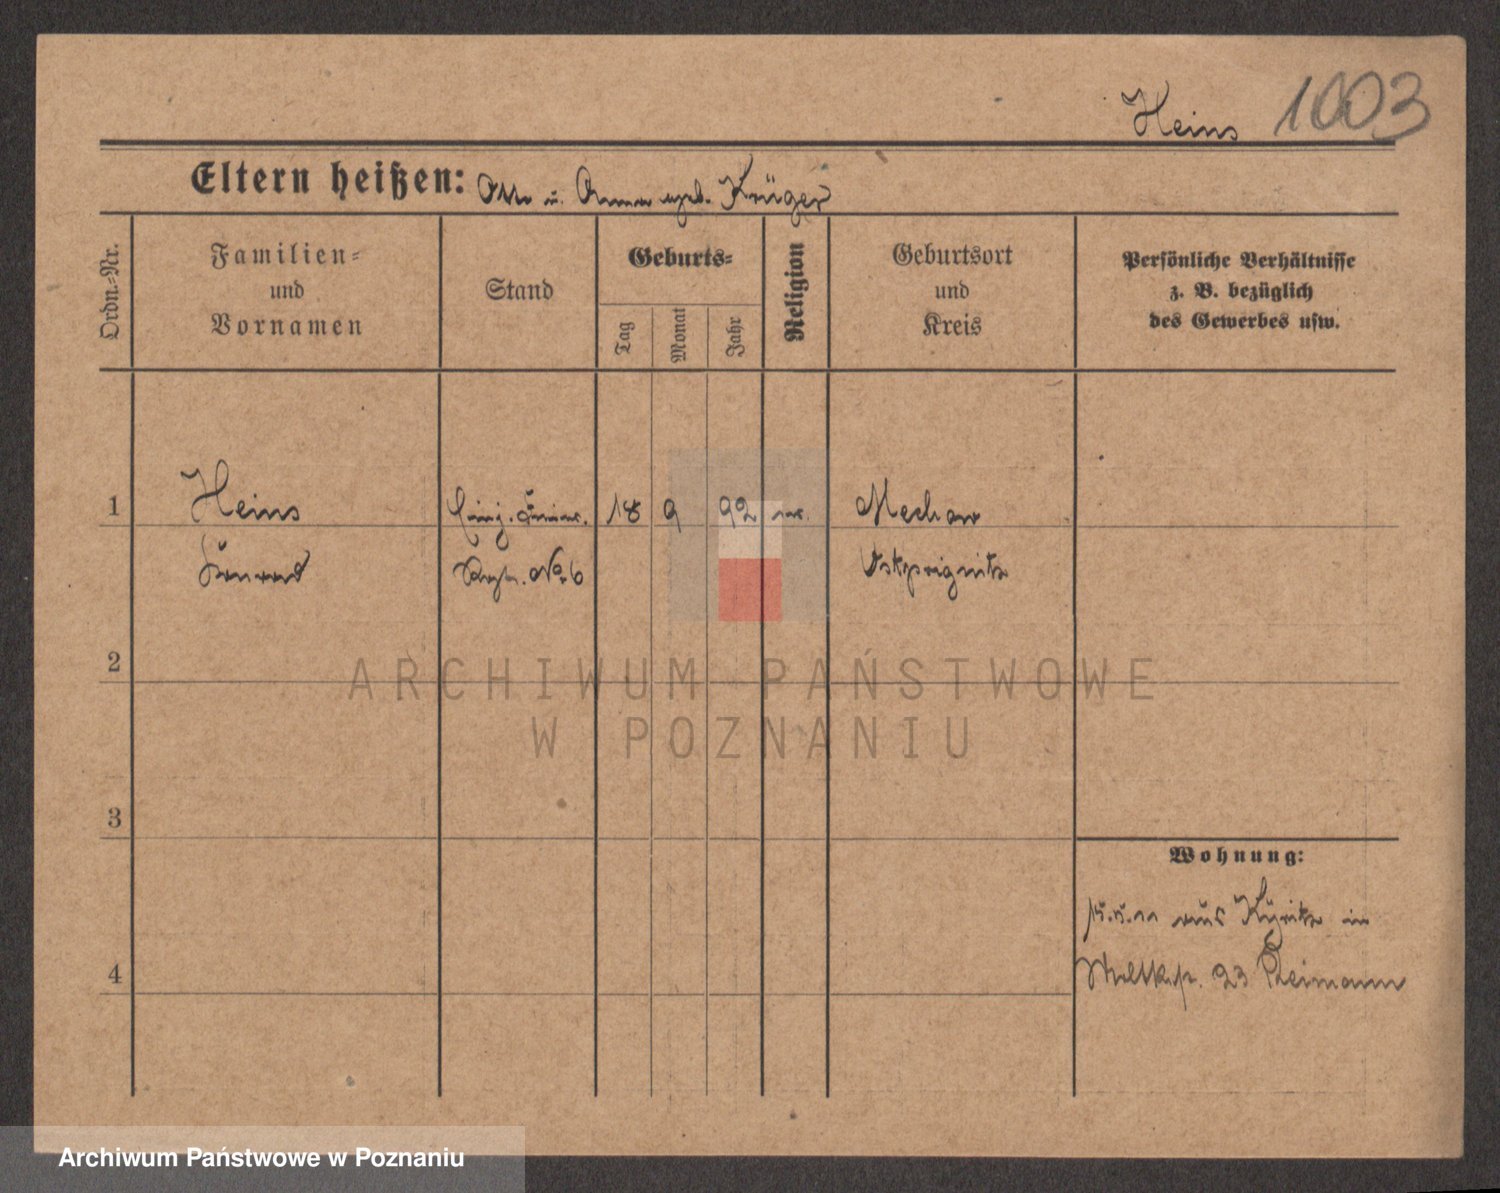 Heins 1003
Eltern heißen: Otto u. Anna geb. Krüger
Ordn.-Nr.
Familien-
und
Vornamen
Stand
Geburts-
Tag
Monat
Jahr
Religion
Geburtsort
und
Kreis
Persönliche Verhältnisse
z. B. bezüglich
des Gewerbes usw.
1 Heins 18 9 92 Mechow
No 6 Ostprignitz
2
ARCHIWUM PAŃSTWOWE
W POZNANIU
3
Wohnung:
aus Kyritz in
4
23 Reimann
Archiwum Państwowe w Poznaniu